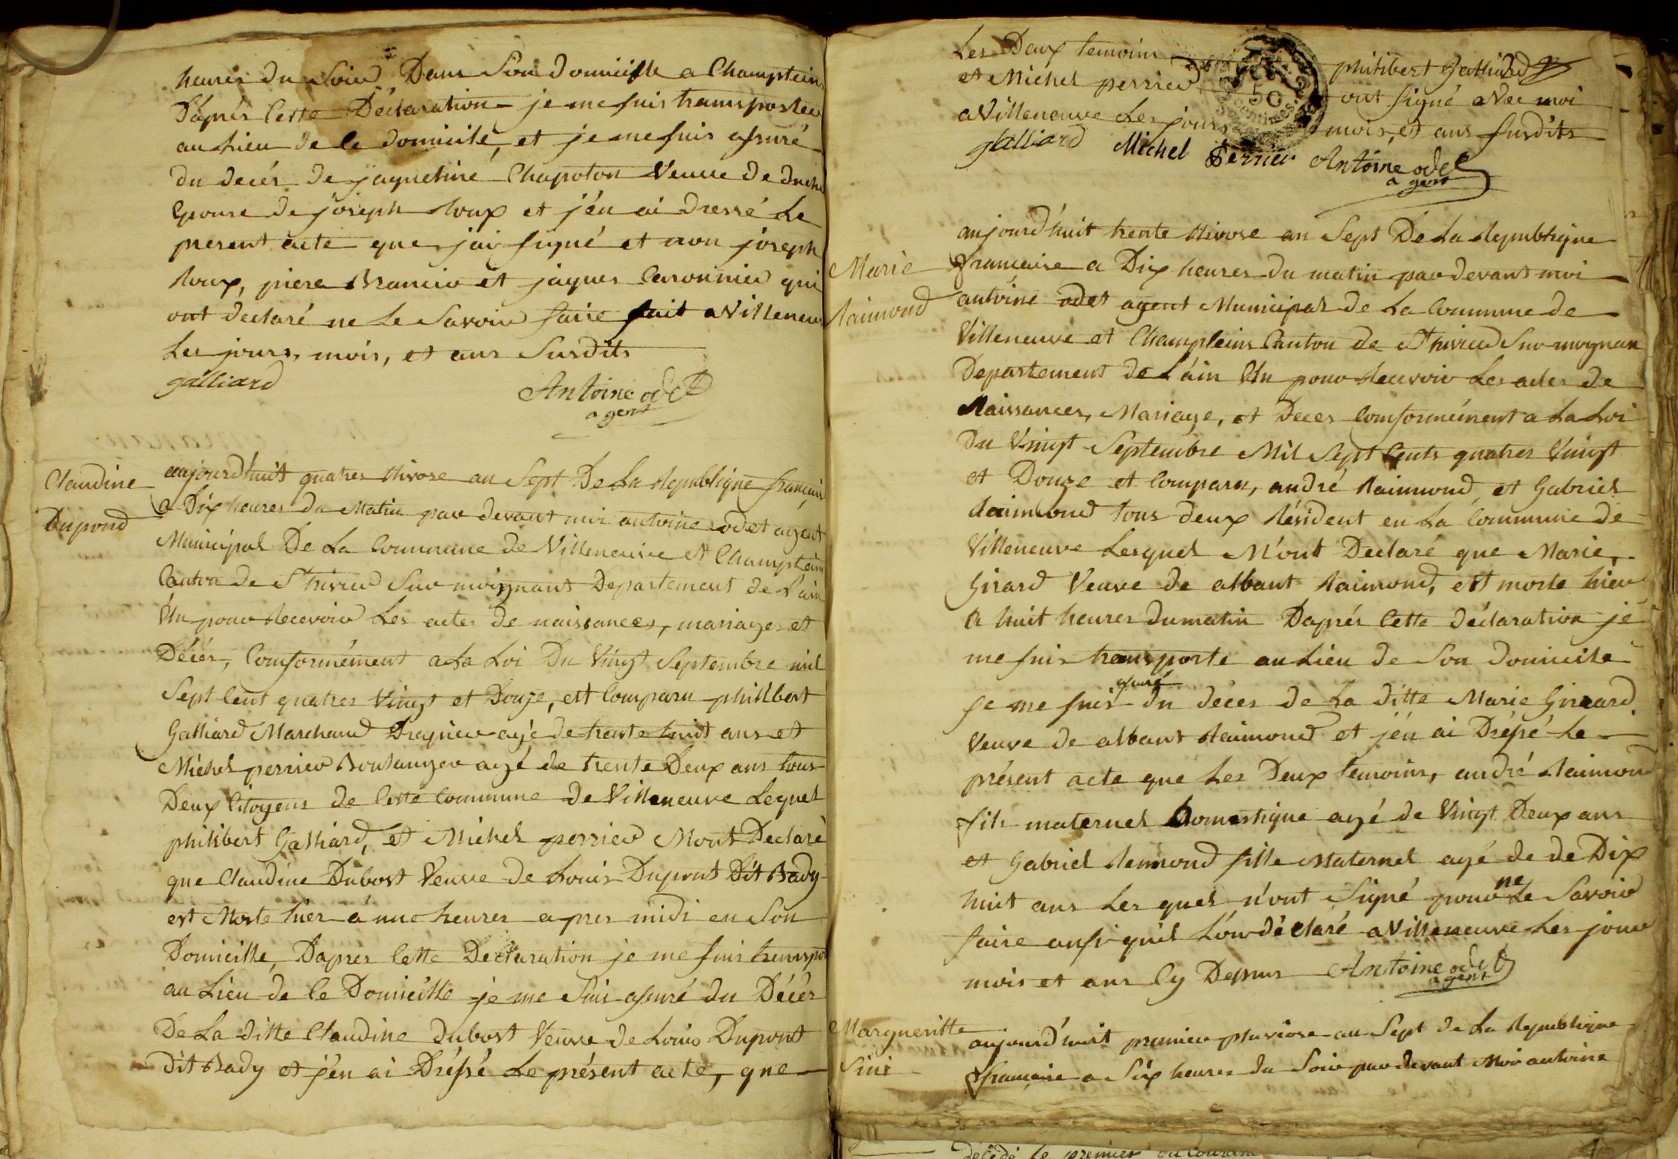 heures du Soir Dans Son domicille a Champtein
D'aprés Cette Déclaration je me suis transportée
au Lieu de le Domicile, et je me suis assuré
du decés de jaqueline Chapoton Veuve de
Epouse de joseph Roup et j'en ai dressé Le
present acte que j'ai signé et non joseph
Roup, piere Brancir et jaques Caronnier qui
ont declaré ne Le Savoir faire fait a Villeneuv
Les jours, mois, et ans Susdits
galliard
Antoine odet
agent
Claudine
Dupond
aujourd'huit quatres Nivose an Sept De La Republique français
a Dix heures du Matin par devant moi antoine odet agent
Municipal De La Commune de Villeneuve et Champtein
Canton de St trivier Sur moignant Departement de l'ain
élu pour Recevoir Les actes de naissances, mariages et
Décés, Conformément a La Loi Du Vingt Septembre mil
Sept Cent quatres Vingt et Douze, est Comparu philibert
Galliard Marchand Drapier agé de trente huit ans et
Michel perrier Boulanger agé de trente Deux ans tous
Deux Citoyens de Cette Commune de Villeneuve Lequel
philibert Galliard, et Michel perrier M'ont Declaré
que Claudine Dubost Veuve de Louis Dupont Dit Bady
est Morte hier à une heures apres midi en Son
Domicille, D'aprés Cette Declaration je me suis transpor
au Lieu de le Domicille je me Suis assuré du Décés
De La ditte Claudine Dubost Veuve de Louis Dupont
Dit Bady et j'en ai Dréssé Le présent acte, que
Les Deux temoins philibert Galliard
et Michel perrier ont signé avec moi
a Villeneuve Les jours mois, et ans susdits
50
galliard Michel Perrier Antoine odet
agent
Marie
Raimond
aujourd'huit trente Nivose an Sept De La Republique
francaise a Dix heures du matin par devant moi
antoine odet agent Municipal de La Commune de
Villeneuve et Champteins Canton de St trivier Sur moignan
Departement de L'ain élu pour Recevoir Les actes de
Naissances, Mariage, et Deces Comformément a La Loi
Du Vingt Septembre Mil Sept Cents quatres Vingt
et Douze et Comparu, andré Raimond, et Gabriel
Raimond tous deux Résident en La Commune de
Villeneuve Lesquel M'ont Declaré que Marie
Girard Veuve de albant Raimond, est morte hier
a huit heures du matin D'aprés Cette déclaration je
me suis transporte au Lieu de Son domicile
je me suis du déces de La ditte Marie Girard
Veuve de albant Raimond et j'en ai Dréssé Le
présent acte que Les Deux temoins, andré Raimond
fils maternel Domestique agé de Vingt Deux ans
et Gabriel Remond fille Maternel agé de de Dix
huit ans Les quels n'ont Signé pour ne Le Savoir
faire ansi qu'il L'on déclaré a Villeneuve Les jour
mois et ans Cy Dessus Antoine odet
agent
Margueritte
Sini
aujourd'huit premier pluviose an Sept de La Republique
française a Six heures du Soir par devant Moi antoine
décédé le premier du Courant